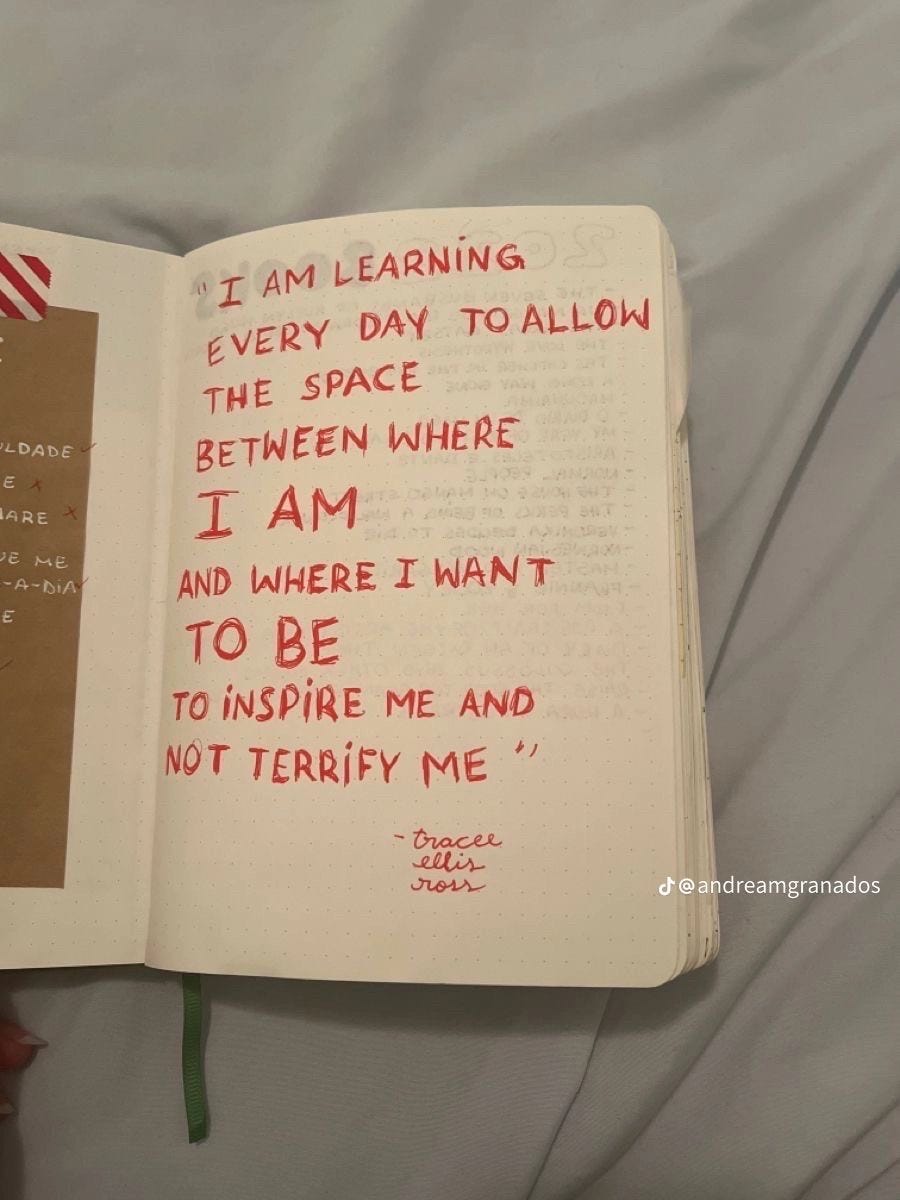 "I AM LEARNING
EVERY DAY TO ALLOW
THE SPACE
BETWEEN WHERE
I AM
AND WHERE I WANT
TO BE
TO INSPIRE ME AND
NOT TERRIFY ME"
- tracee
ellis
ross
@andreamgranados
ULDADE
E
HARE
UE ME
-A-DIA
E